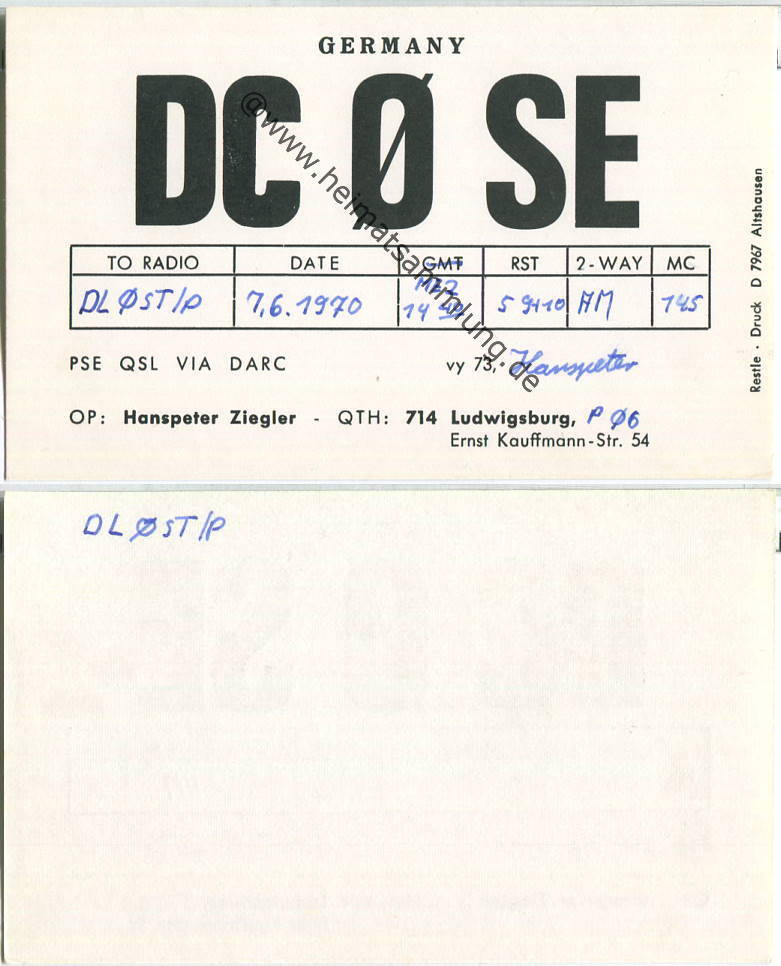 GERMANY
DC Ø SE
@www.heimatsammlung.de
TO RADIO DATE GMT RST 2-WAY MC
MEZ
DL ØST/P 7.6.1970 14 5 9+10 AM 145
PSE QSL VIA DARC vy 73, Hanspeter
OP: Hanspeter Ziegler - QTH: 714 Ludwigsburg, P Ø6
Ernst Kauffmann-Str. 54
Restle · Druck D 7967 Altshausen
DL ØST/P